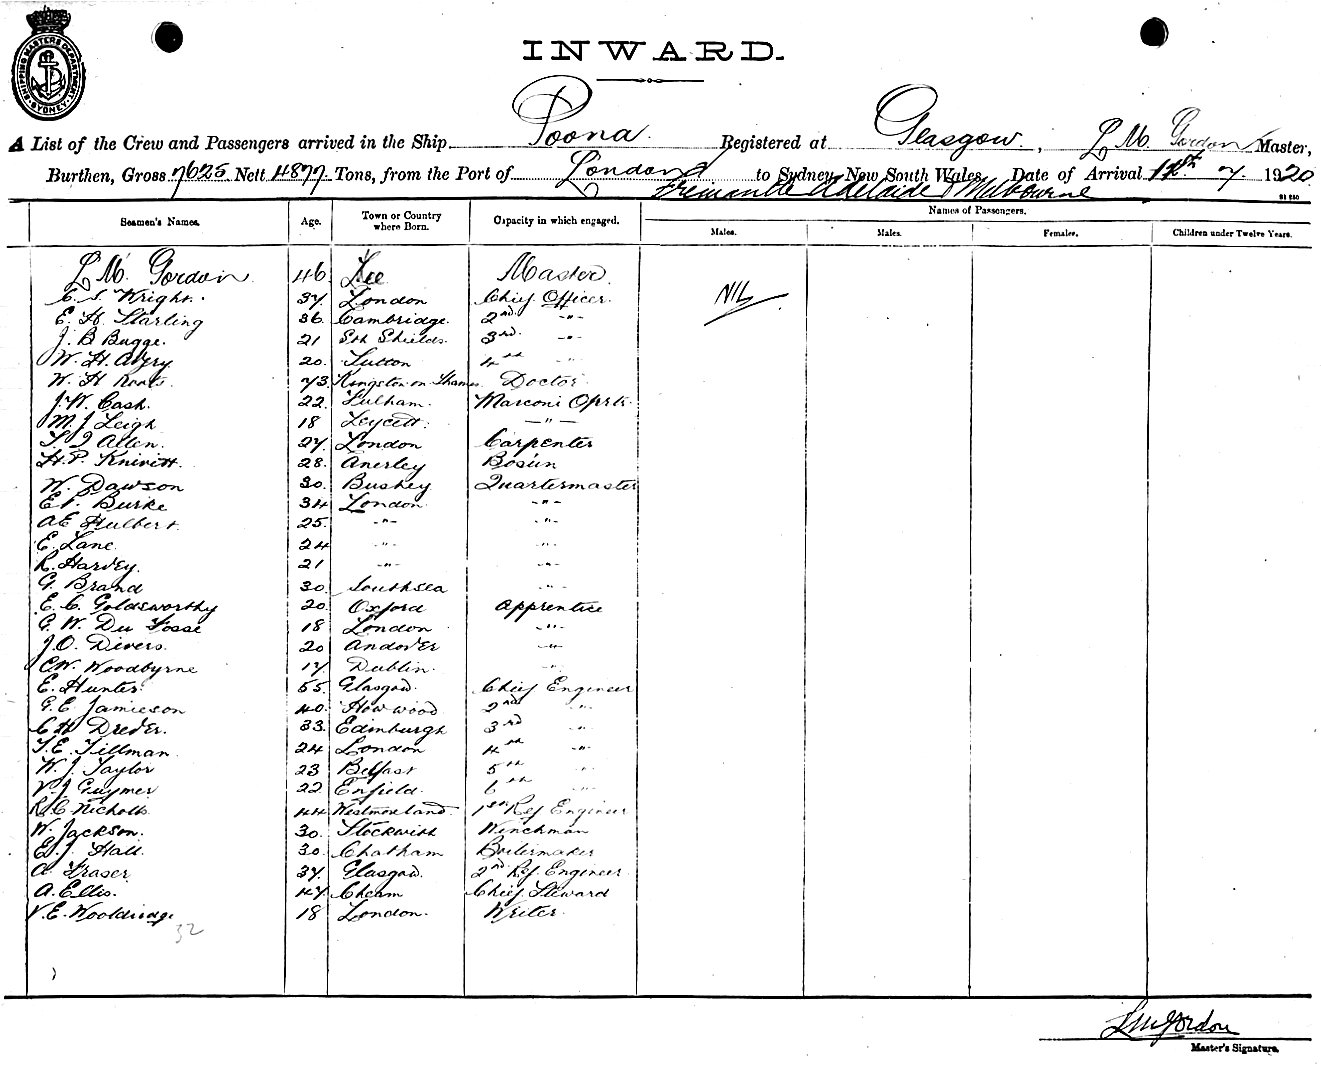 SHIPPING MASTERS DEPARTMENT SYDNEY
INWARD.
A List of the Crew and Passengers arrived in the Ship Poona Registered at Glasgow, L M. Gordon Master,
Burthen, Gross 7625 Nett 4877 Tons, from the Port of London to Sydney New South Wales, Date of Arrival 7 1920
Fremantle Adelaide & Melbourne
Seamen's Names. Age. Town or Country where Born. Capacity in which engaged. Names of Passengers.
Males. Males. Females. Children under Twelve Years.
L M. Gordon 46 Lee Master
C. S. Wright. 37 London Chief Officer. Nil
E. H. Starling 36 Cambridge. 2nd -"-
J. B Bugge. 21 Sth Shields. 3rd -"-
W. H. Avery 20. Sutton 4th -"-
W. H Roots. 73 Kingston on Thames Doctor
J. W. Cash. 22. Fulham. Marconi Oprtr.
M. J Leigh 18 Leycett. -"-
Allen. 27 London Carpenter
H. P. Knivitt. 28. Anerley Bosun
W. Dawson 30. Bushey Quartermaster
Burke 34 London -"-
A E Hulbert. 25. -"- -"-
E. Lane. 24 -"- -"-
R. Harvey. 21 -"- -"-
G. Brand 30. Southsea -"-
E. C. Goldsworthy 20. Oxford Apprentice
G. W. Du Fosse 18 London -"-
J. O. Divers. 20 Andover -"-
C. W. Woodbyrne 17 Dublin. -"-
E. Hunter. 55. Glasgow Chief Engineer
G. E. Jamieson 40. Howwood 2nd -"-
C H Drever. 33. Edinburgh 3rd -"-
T. E. Tillman. 24 London 4th -"-
W. J. Taylor 23 Belfast 5th -"-
V. J Guymer 22 Enfield. 6th -"-
R. C. Nicholls 44 Westmoreland 1st Ref Engineer
W. Jackson. 30. Stockwith Winchman
E. J. Hall. 30. Chatham Boilermaker
A. Fraser 37. Glasgow. 2nd Ref. Engineer
A. Ellis. 47 Cheam Chief Steward
V. E. Wooldridge 18 London. Writer.
32
L M Gordon
Master's Signature.